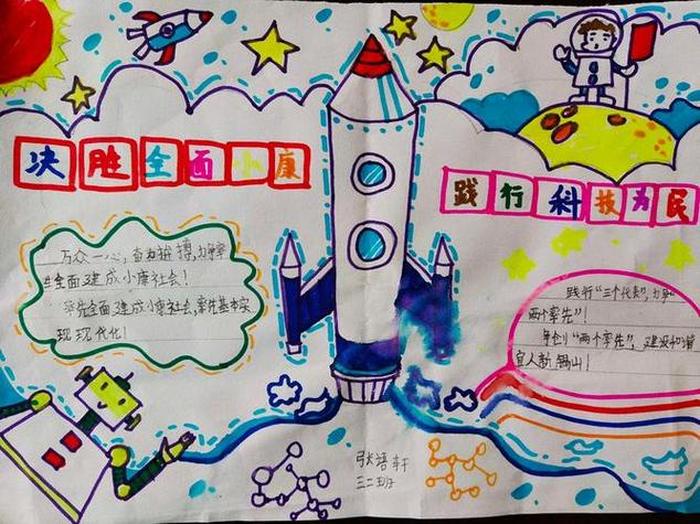 决胜全面小康
践行科技为民
万众一心,奋力拼搏,力争率
先全面建成小康社会!
率先全面建成小康社会,率先基本实
现现代化!
践行“三个代表”,力争
“两个率先”!
争创“两个率先”,建设和谐
宜人新锡山!
张语轩
三二班